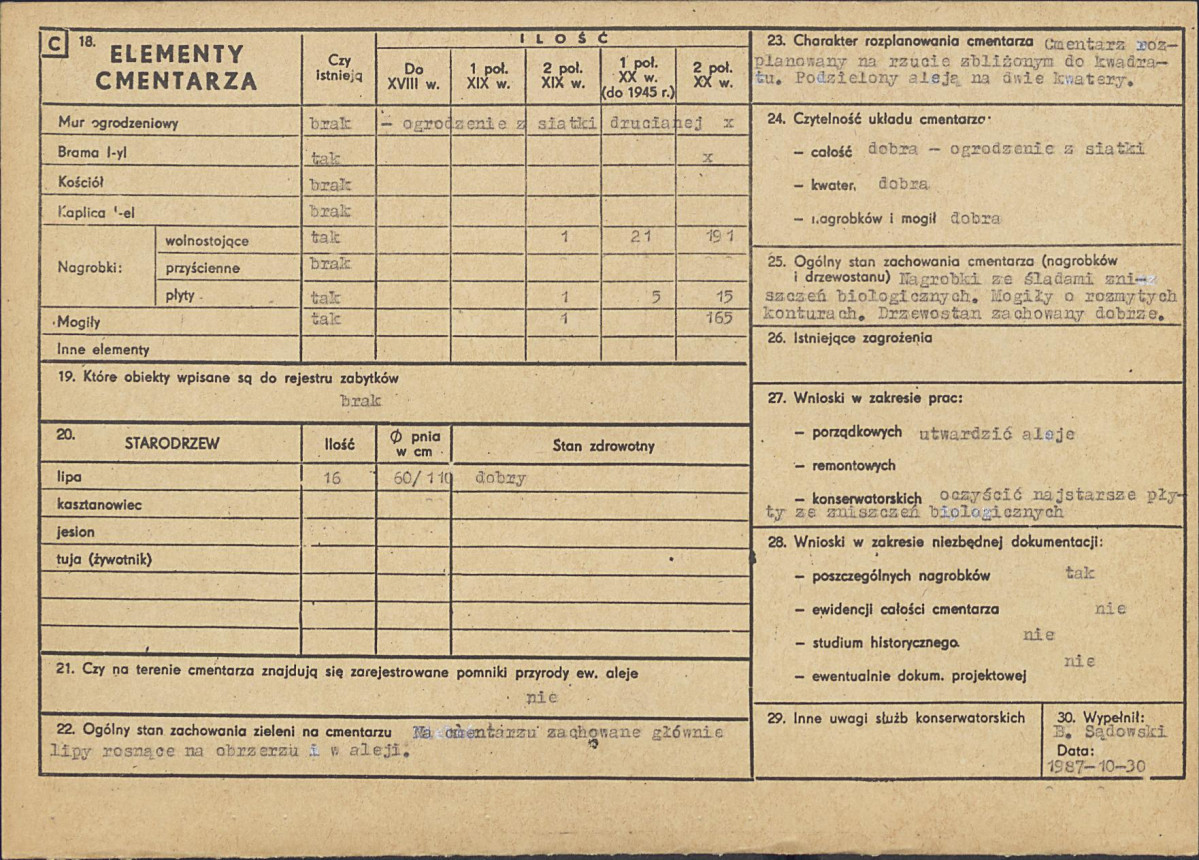 C 18. ELEMENTY CMENTARZA
Czy istnieją
ILOŚĆ
Do XVIII w.
1 poł. XIX w.
2 poł. XIX w.
1 poł. XX w. (do 1945 r.)
2 poł. XX w.
Mur ogrodzeniowy brak – ogrodzenie z siatki drucianej x
Brama /-y/ tak x
Kościół brak
Kaplica /-e/ brak
Nagrobki:
wolnostojące tak 1 21 191
przyścienne brak
płyty tak 1 5 15
Mogiły tak 1 165
Inne elementy
19. Które obiekty wpisane są do rejestru zabytków
brak
20. STARODRZEW Ilość Ø pnia w cm Stan zdrowotny
lipa 16 60/110 dobry
kasztanowiec
jesion
tuja (żywotnik)
21. Czy na terenie cmentarza znajdują się zarejestrowane pomniki przyrody ew. aleje
nie
22. Ogólny stan zachowania zieleni na cmentarzu Na cmentarzu zachowane głównie
lipy rosnące na obrzerzu i w aleji.
23. Charakter rozplanowania cmentarza Cmentarz roz-
planowany na rzucie zbliżonym do kwadra-
tu. Podzielony aleją na dwie kwatery.
24. Czytelność układu cmentarza
– całość dobra – ogrodzenie z siatki
– kwater, dobra
– nagrobków i mogił dobra
25. Ogólny stan zachowania cmentarza (nagrobków
i drzewostanu) Nagrobki ze śladami zni-
szczeń biologicznych. Mogiły o rozmytych
konturach. Drzewostan zachowany dobrze.
26. Istniejące zagrożenia
27. Wnioski w zakresie prac:
– porządkowych utwardzić aleje
– remontowych
– konserwatorskich oczyścić najstarsze pły-
ty ze zniszczeń biologicznych
28. Wnioski w zakresie niezbędnej dokumentacji:
– poszczególnych nagrobków tak
– ewidencji całości cmentarza nie
– studium historycznego nie
– ewentualnie dokum. projektowej nie
29. Inne uwagi służb konserwatorskich
30. Wypełnił:
B. Sądowski
Data:
1987-10-30